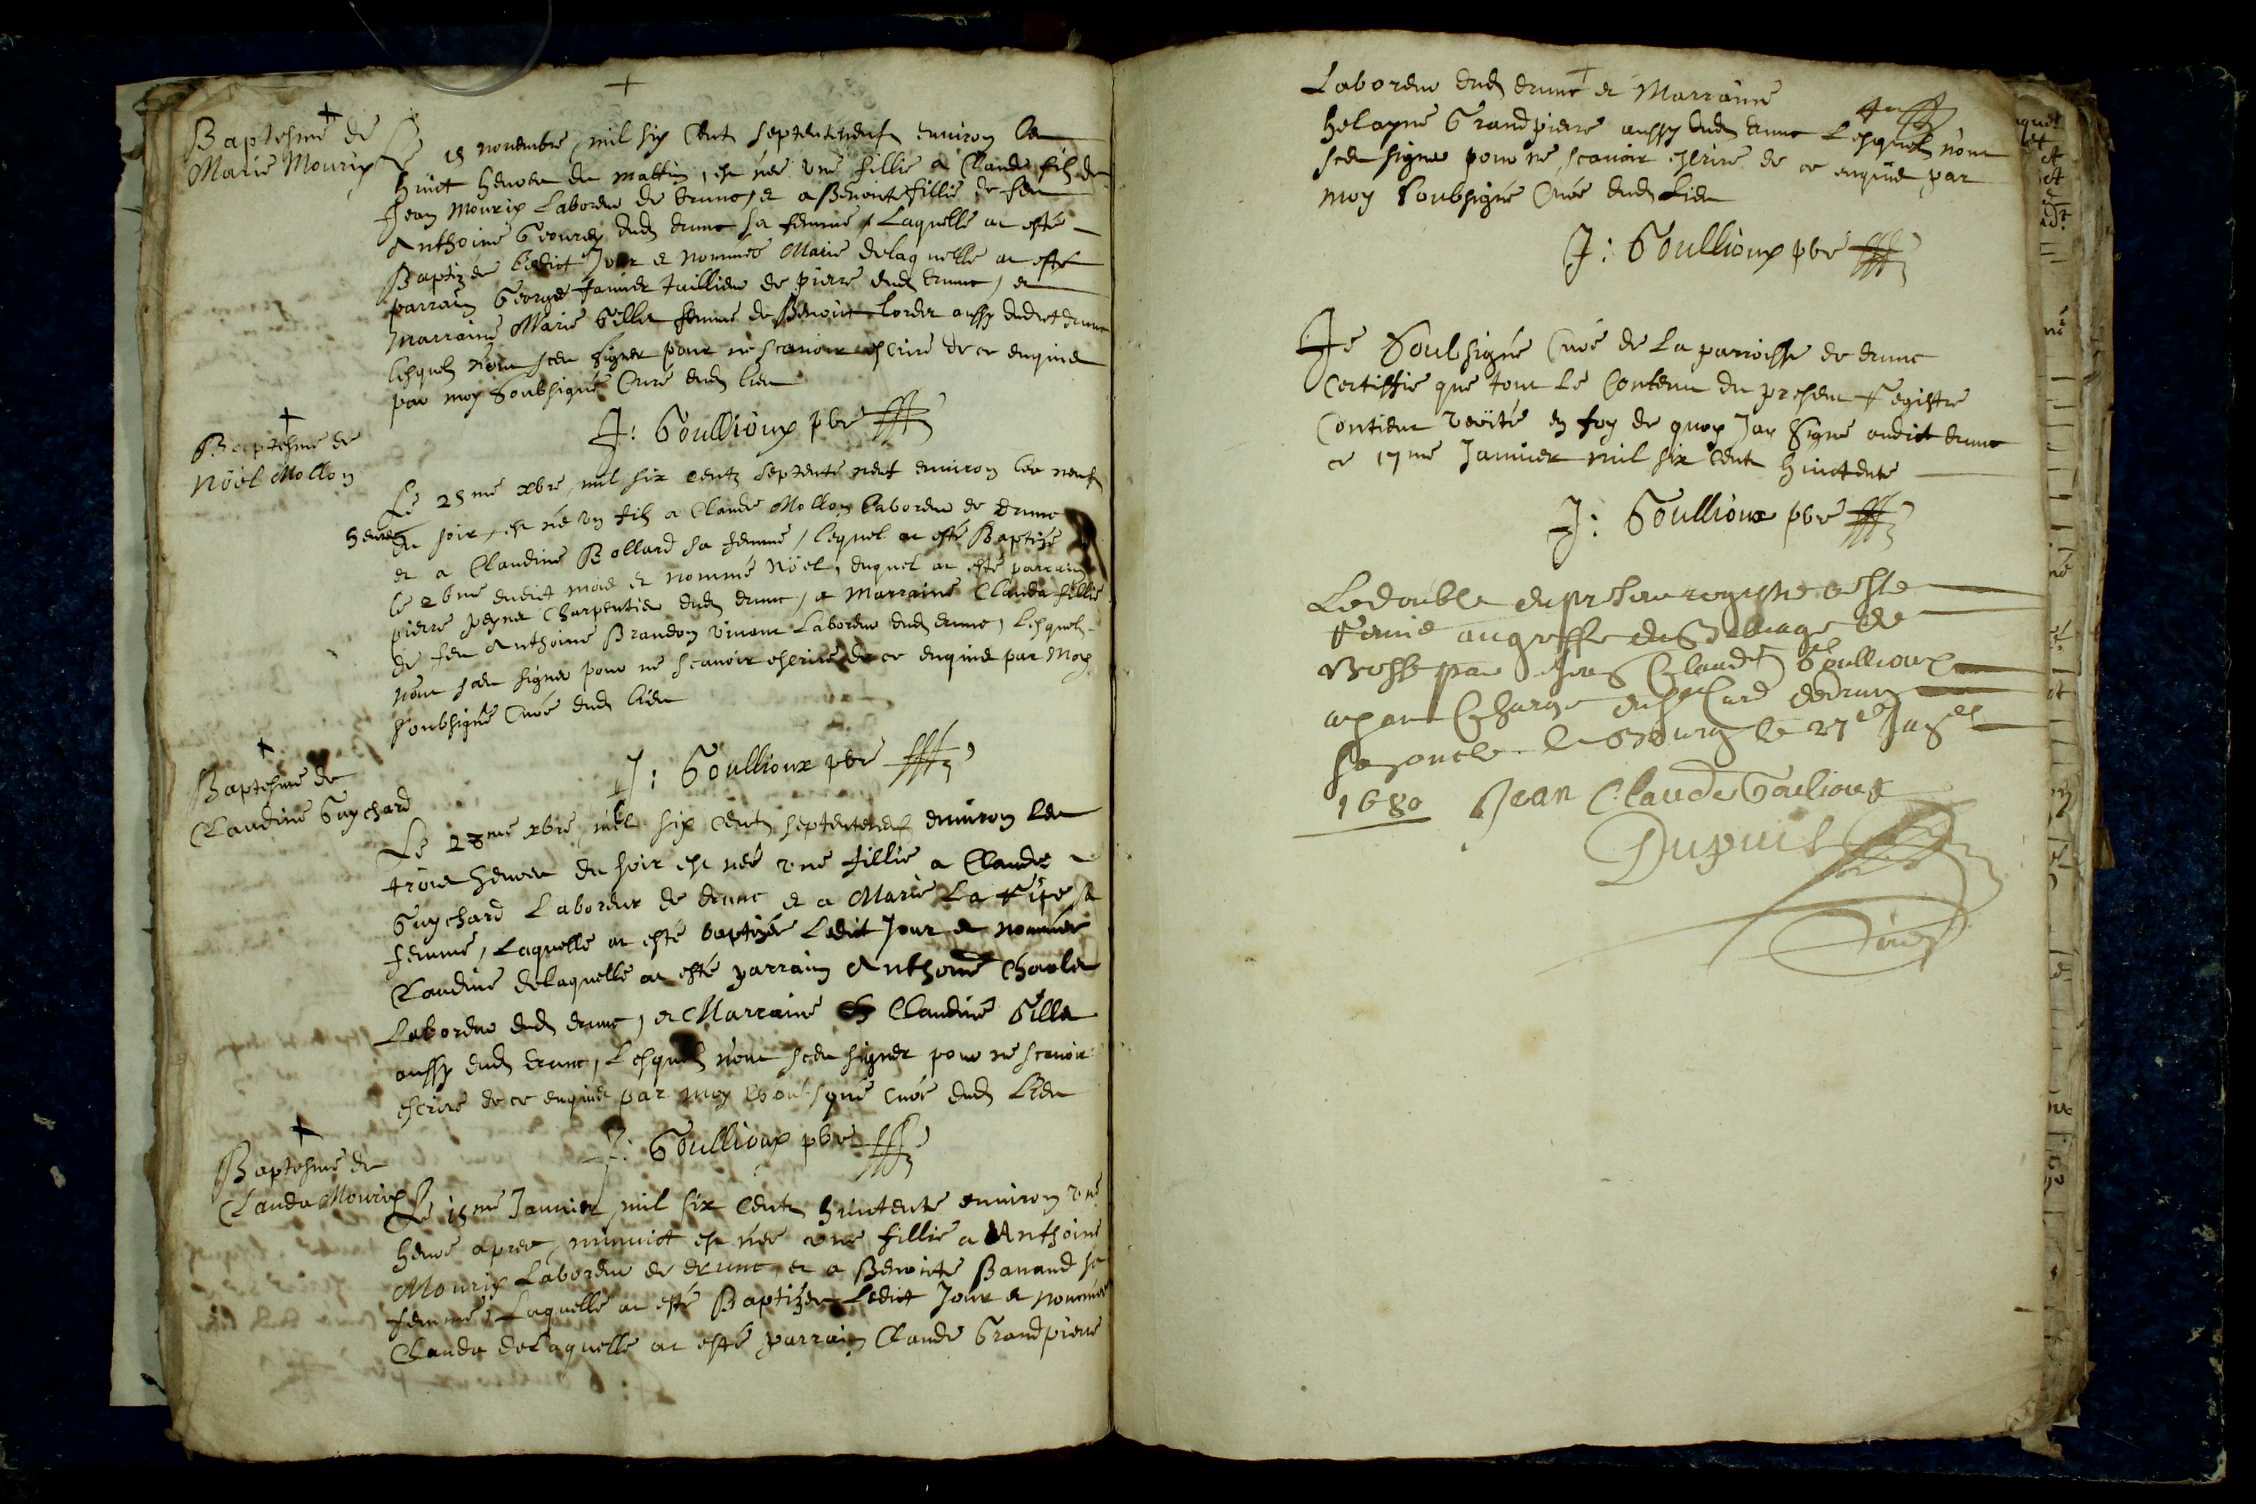 Baptesme de
Marie Mourix
Le 15 novembre, mil six Cent septenteneuf environ les
huict heures du mattin, est née une fillie a Claude fils de
Jean Mourix Laboreur de drunc, et a Benoite fillie de feu
Anthoine Geourey dud drunc sa femme, Laquelle at esté
Baptizée ledict Jour et nommée Marie delaquelle at esté
parrain George Janier tailleur de pierre dud drunc, et
marraine Marie Gilles femme de Benoict aussy dudict drunc
lesquels n'ont sceu signer pour ne scavoir escrire de ce enquis
par moy Soubsigné Curé dud lieu
J: Goullioux pbr
Baptesme de
Nöel Mollon
Le 25me xbre, mil six centz septente neuf environ les neuf
heures
du soir, est né un fils a Claude Mollon Laboreur de drunc
et a Claudine Bollard sa femme, lequel at esté Baptizé
le 26me dudict mois et nommé Nöel, duquel at esté parrain
pierre peyne Charpentier dud drunc, et Marraine Clauda fillie
de feu Anthoine Brandon vivant Laboreur dud drunc, Lesquels
n'ont sceu signer pour ne scavoir escrire de ce enquis par Moy
soubsigné Curé dud lieu
J: Goullioux pbr
Baptesme de
Claudine Guychard
Le 28me xbre, mil six Centz septenteneuf environ les
trois heures du soir est née une fillie a Claude
Guychard Laboreur de drunc et a Marie La sa
femme, Laquelle at esté baptizée Ledict Jour et nommée
Claudine delaquelle at esté parrain Anthoine Charles
Laboreur dud drunc, et Marraine Claudine Gilles
aussy dud drunc, Lesquels n'ont sceu signer pour ne scavoir
escrire de ce enquis par moy soubsigné curé dud Lieu
J: Goullioux pbr
Baptesme de
Clauda Mourix
Le 15me Janvier, mil six Centz huictente environ une
heure apres minuict est née une fillie a Anthoine
Mourix Laboreur de drunc, et a Benoite Banand sa
femme, Laquelle at esté Baptizée Ledict Jour et nommée
Clauda delaquelle at esté parrain Claude Grandpierre
Laboreur dud drunc et Marraine
helayne Grandpierre aussy dud drunc Lesquels n'ont
sceu signer pour ne scavoir escrire de ce enquis par
moy soubsigné Curé dud Lieu
J: Goullioux pbr
Je Soubsigné Curé de La parroisse de drunc
Certiffie que tout Le Contenu du present Registre
Contient verité en foy de quoy Jay Signé audict drunc
ce 17me Janvier mil six Cent huictente
J: Goullioux pbr
Le double du present registre a esté
remis au greffe du Balliage de
Bresse par Jean Claude Goullioux
ayant Charge du Sr Curé dedrunc
son oncle a Bourg le 27e Janer
1680 Jean Claude Goulioux
Dupuis